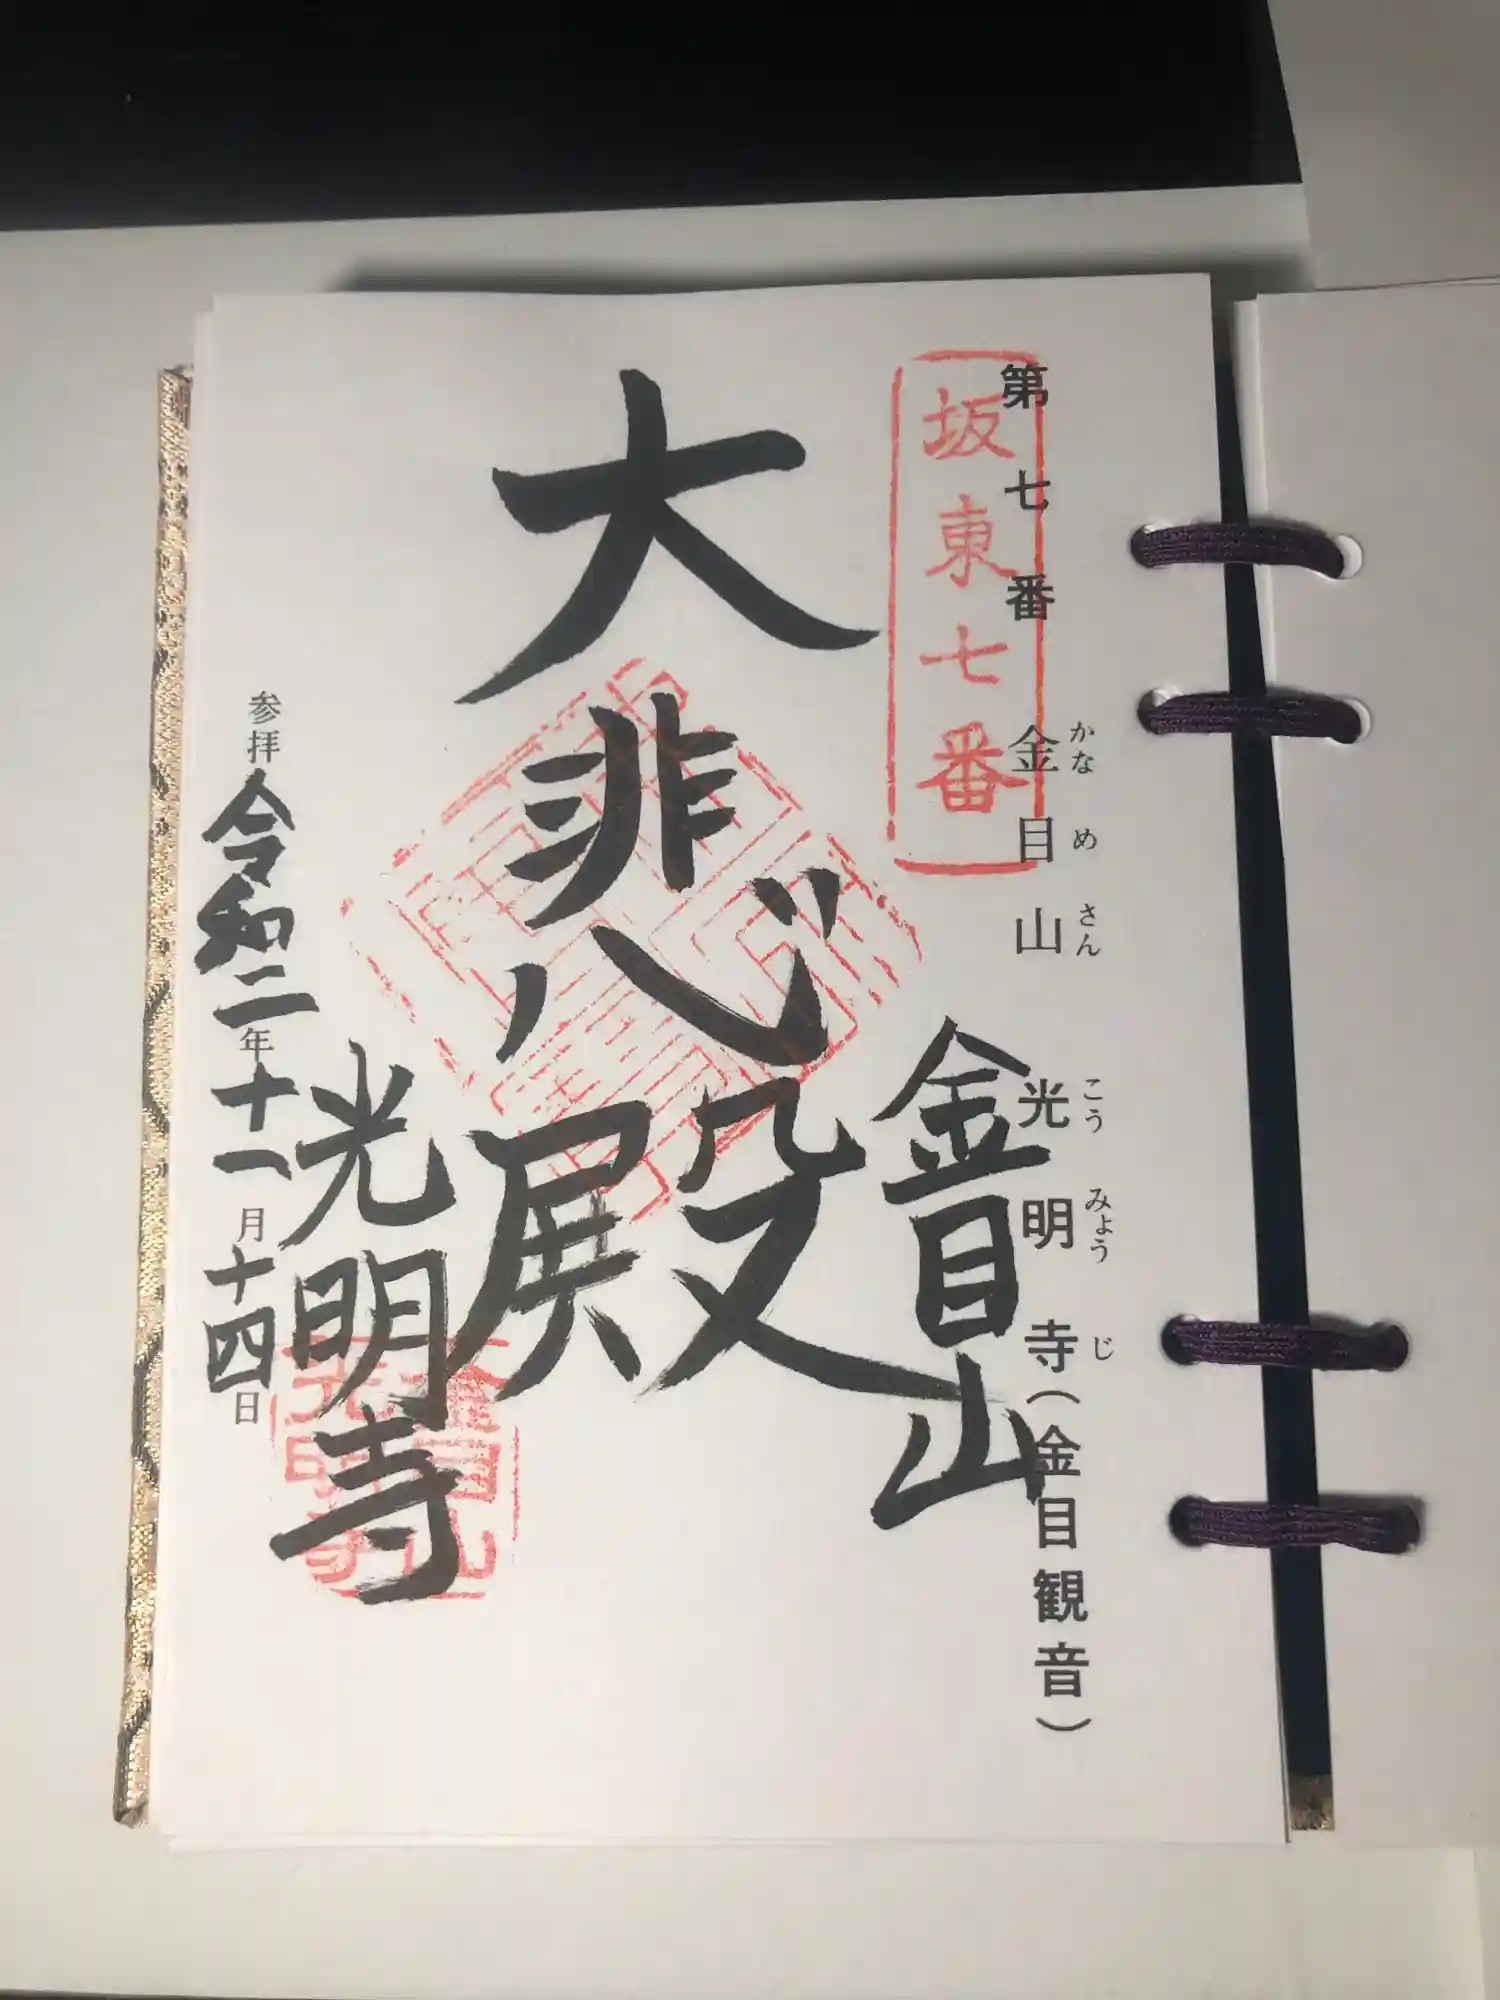 第七番 金目山 光明寺(金目観音)
かなめさん こうみょうじ
坂東七番
金目山
大悲殿
光明寺
参拝 令和二年十一月十四日